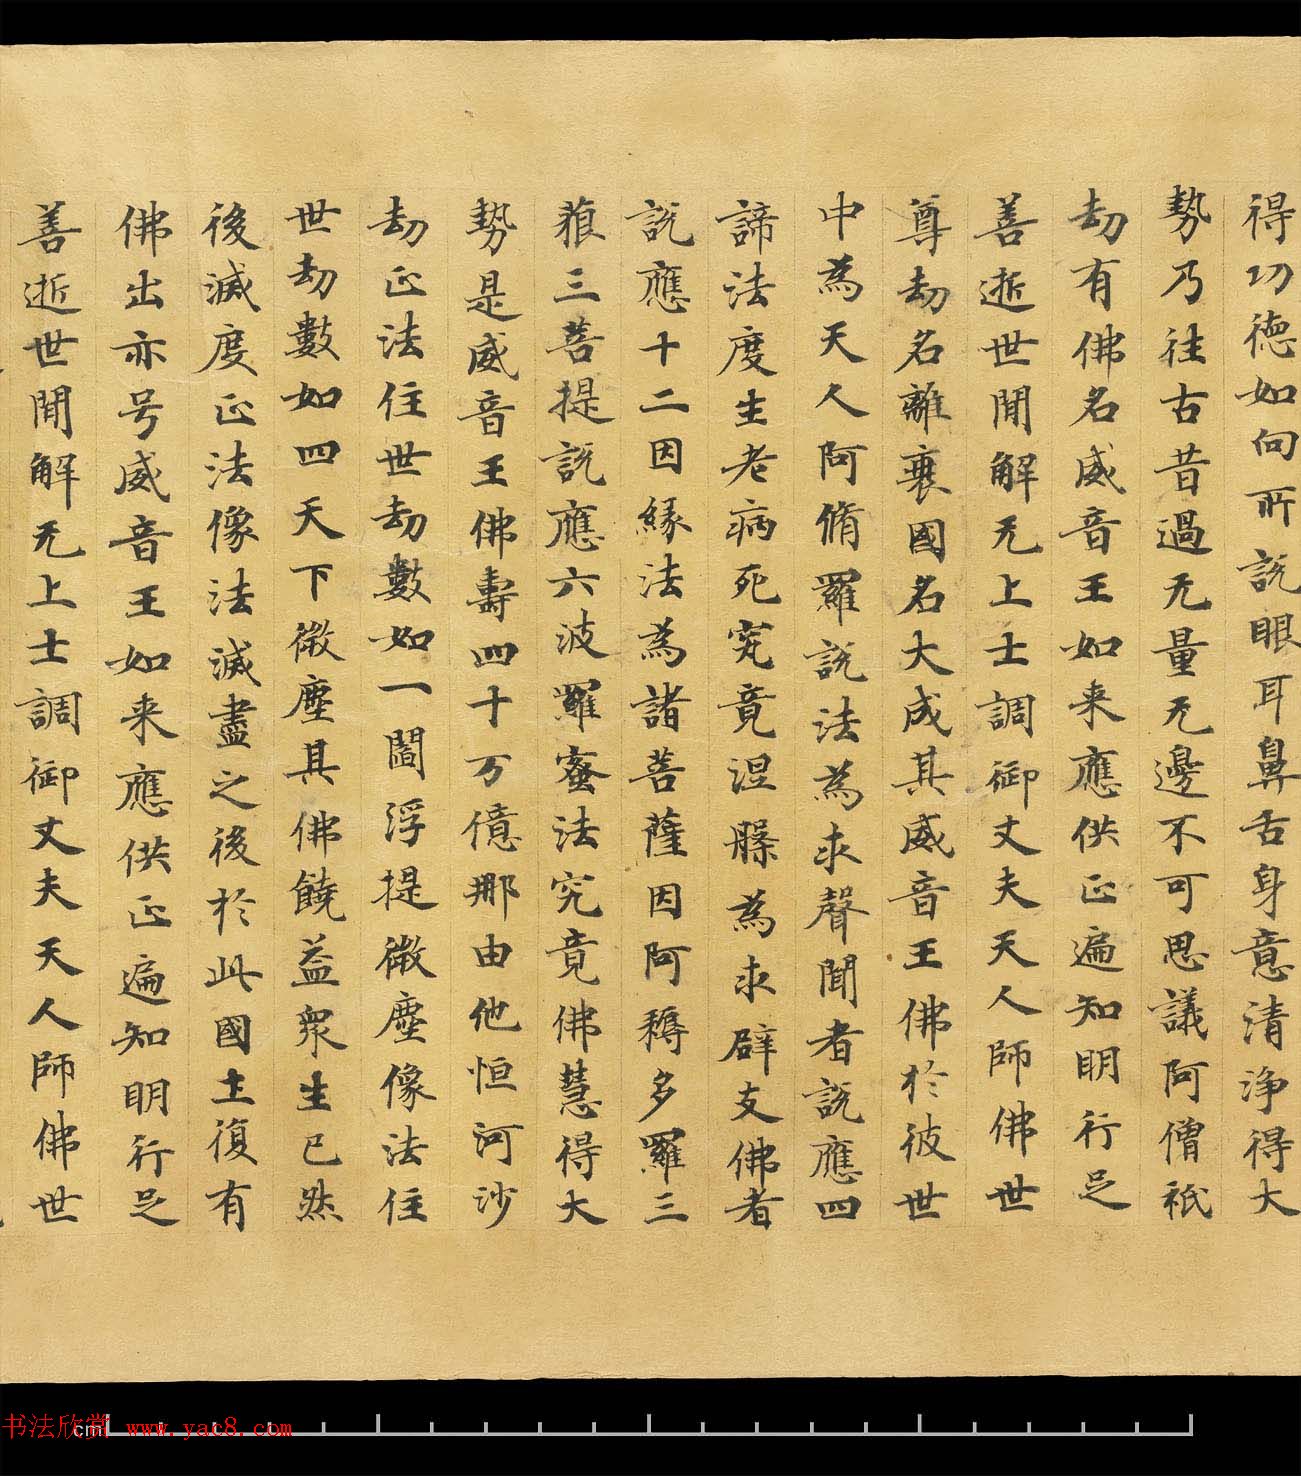 得功德如向所說眼耳鼻舌身意清淨得大
勢乃往古昔過无量无邊不可思議阿僧祇
劫有佛名威音王如来應供正遍知明行足
善逝世間解无上士調御丈夫天人師佛世
尊劫名離衰國名大成其威音王佛於彼世
中為天人阿脩羅說法為求聲聞者說應四
諦法度生老病死究竟涅槃為求辟支佛者
說應十二因緣法為諸菩薩因阿耨多羅三
藐三菩提說應六波羅蜜法究竟佛慧得大
勢是威音王佛壽四十万億那由他恒河沙
劫正法住世劫數如一閻浮提微塵像法住
世劫數如四天下微塵其佛饒益眾生已然
後滅度正法像法滅盡之後於此國土復有
佛出亦号威音王如来應供正遍知明行足
善逝世間解无上士調御丈夫天人師佛世
书法欣赏 www.yac8.com
cm